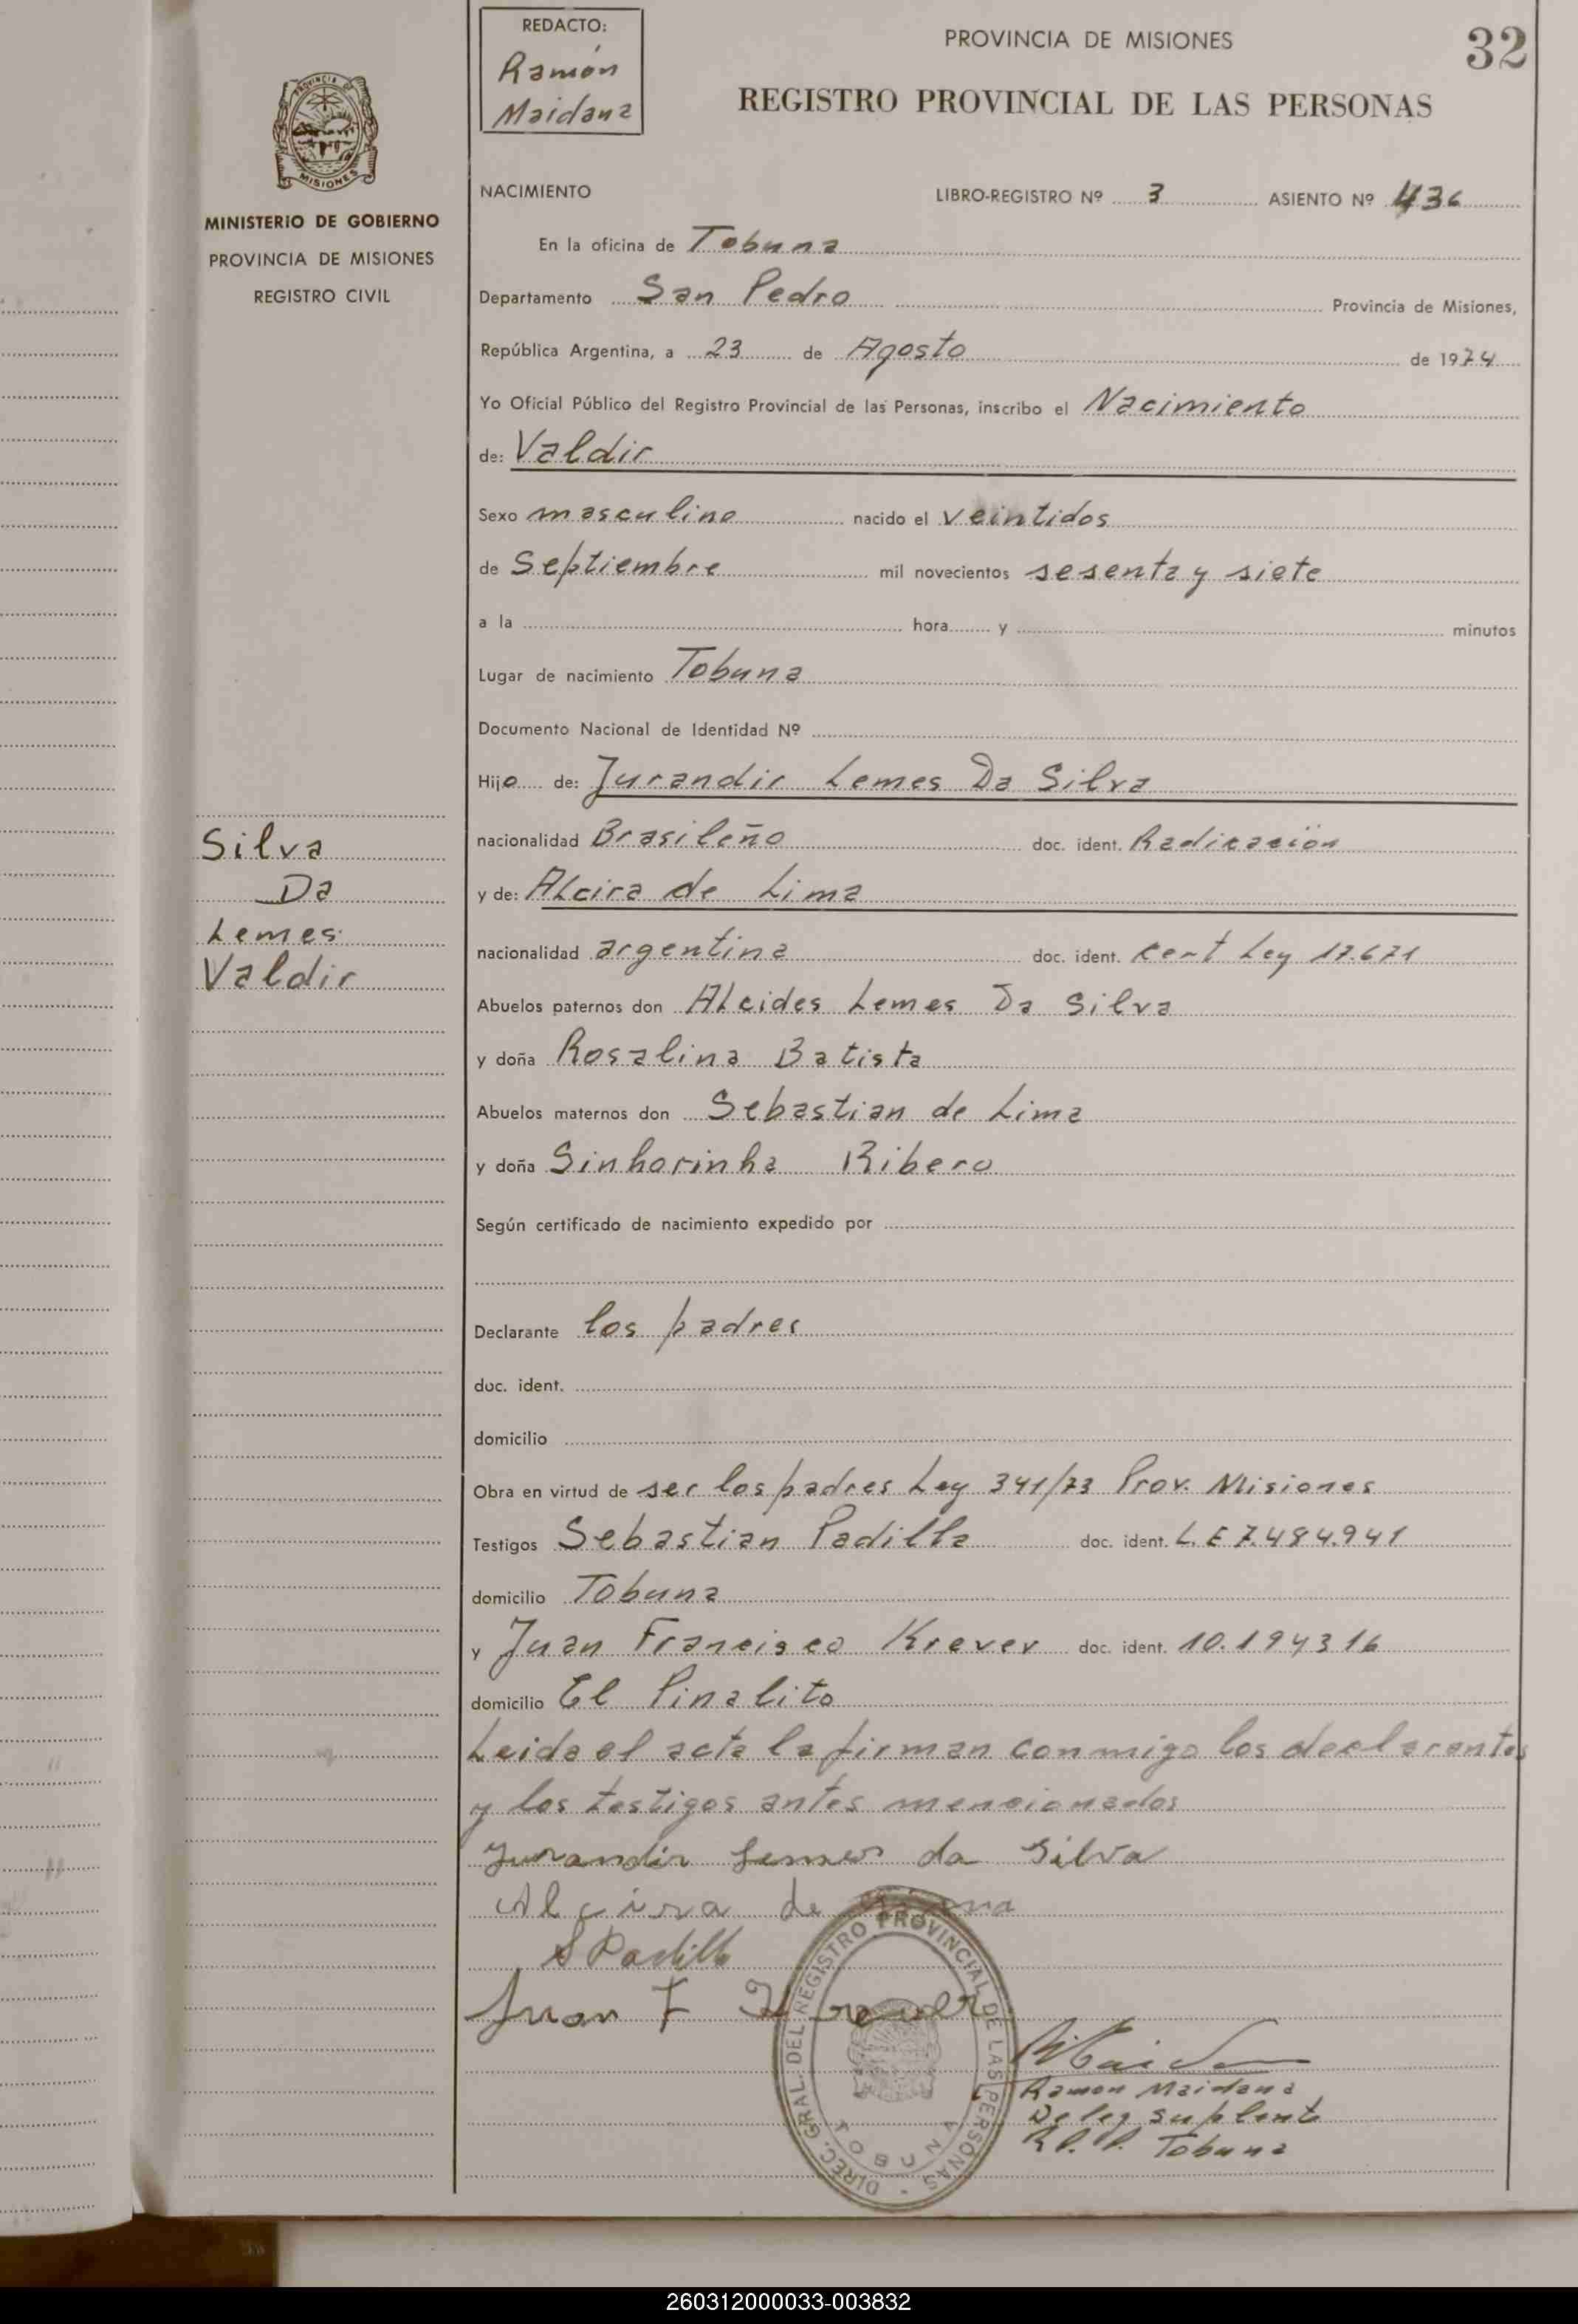 REDACTO:
Ramón
Maidana
PROVINCIA DE MISIONES
32
REGISTRO PROVINCIAL DE LAS PERSONAS
PROVINCIA DE
MISIONES
MINISTERIO DE GOBIERNO
PROVINCIA DE MISIONES
REGISTRO CIVIL
NACIMIENTO LIBRO-REGISTRO Nº 3 ASIENTO Nº 436
En la oficina de Tobuna
Departamento San Pedro Provincia de Misiones,
República Argentina, a 23 de Agosto de 1974
Yo Oficial Público del Registro Provincial de las Personas, inscribo el Nacimiento
de: Valdir
Sexo masculino nacido el veintidos
de Septiembre mil novecientos sesenta y siete
a la hora y minutos
Lugar de nacimiento Tobuna
Documento Nacional de Identidad Nº
Hijo de: Jurandir Lemes Da Silva
nacionalidad Brasileño doc. ident. Radicación
y de: Alcira de Lima
nacionalidad argentina doc. ident. cert Ley 17.671
Abuelos paternos don Alcides Lemes Da Silva
y doña Rosalina Batista
Abuelos maternos don Sebastian de Lima
y doña Sinhorinha Ribero
Según certificado de nacimiento expedido por
Declarante los padres
doc. ident.
domicilio
Obra en virtud de ser los padres Ley 341/73 Prov. Misiones
Testigos Sebastian Padilla doc. ident. L.E 7.484.941
domicilio Tobuna
y Juan Francisco Krever doc. ident. 10.194316
domicilio El Pinalito
Leida el acta la firman conmigo los declarantes
y los testigos antes mencionados
Jurandir Lemes da Silva
Alcira de Lima
S Padilla
Juan F Krever
Ramon Maidana
Deleg suplente
R.P.P. Tobuna
DIREC. GRAL. DEL REGISTRO PROVINCIAL DE LAS PERSONAS
TOBUNA
Silva
Da
Lemes
Valdir
260312000033-003832